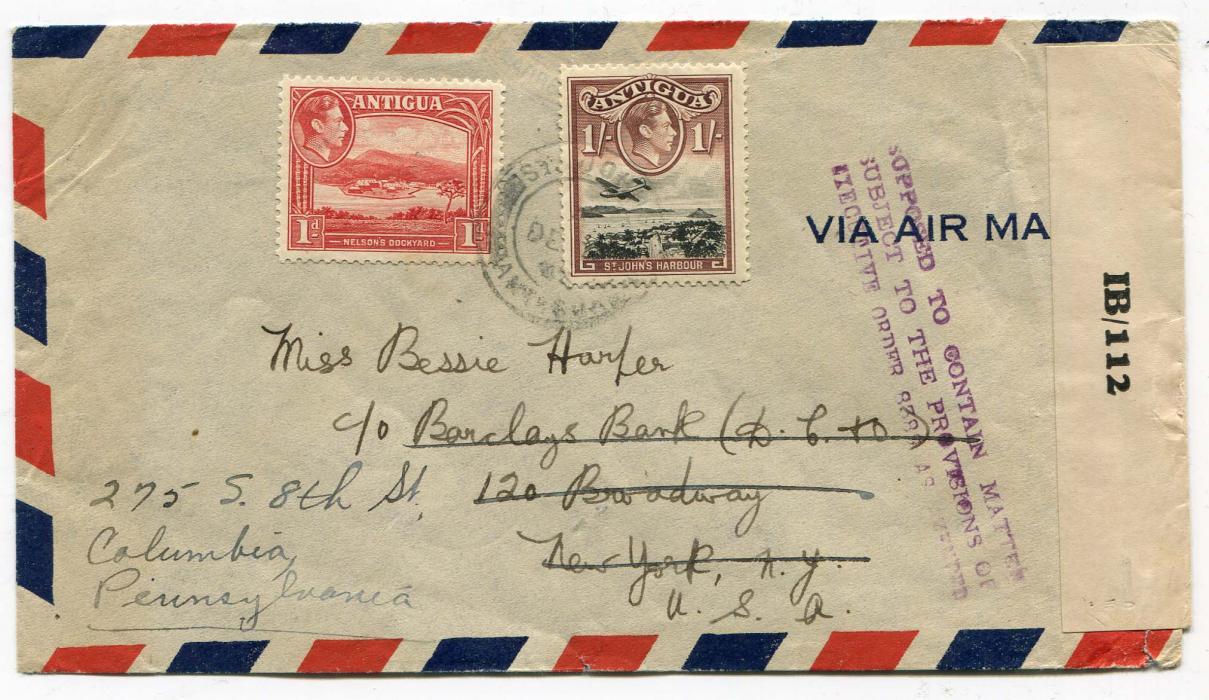 ANTIGUA
1d
1d
NELSON'S DOCKYARD
ANTIGUA
1/-
1/-
ST JOHN'S HARBOUR
ST. JOHN'S
DE
VIA AIR MA
SUPPOSED TO CONTAIN MATTER
SUBJECT TO THE PROVISIONS OF
EXECUTIVE ORDER AS
IB/112
Miss Bessie Harper
c/o Barclays Bank (D. C. & O.)
120 Broadway
New York, N.Y.
U. S. A.
275 S. 8th St,
Columbia,
Pennsylvania